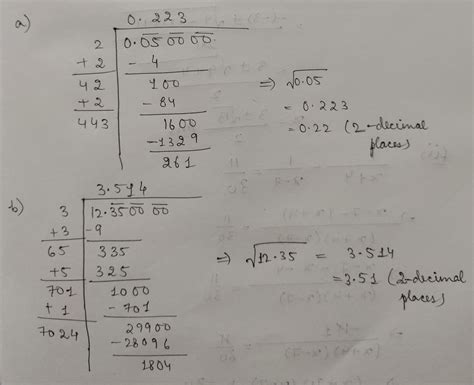 a)
0.223
2 | 0.05 00 00
+2 | -4
42 | 100
+2 | -84
443 | 1600
-1329
261
⇒ √0.05
= 0.223
= 0.22 (2-decimal
places)
b)
3.514
3 | 12.35 00 00
+3 | -9
65 | 335
+5 | 325
701 | 1000
+1 | -701
7024 | 29900
-28096
1804
⇒ √12.35 = 3.514
= 3.51 (2-decimal
places)